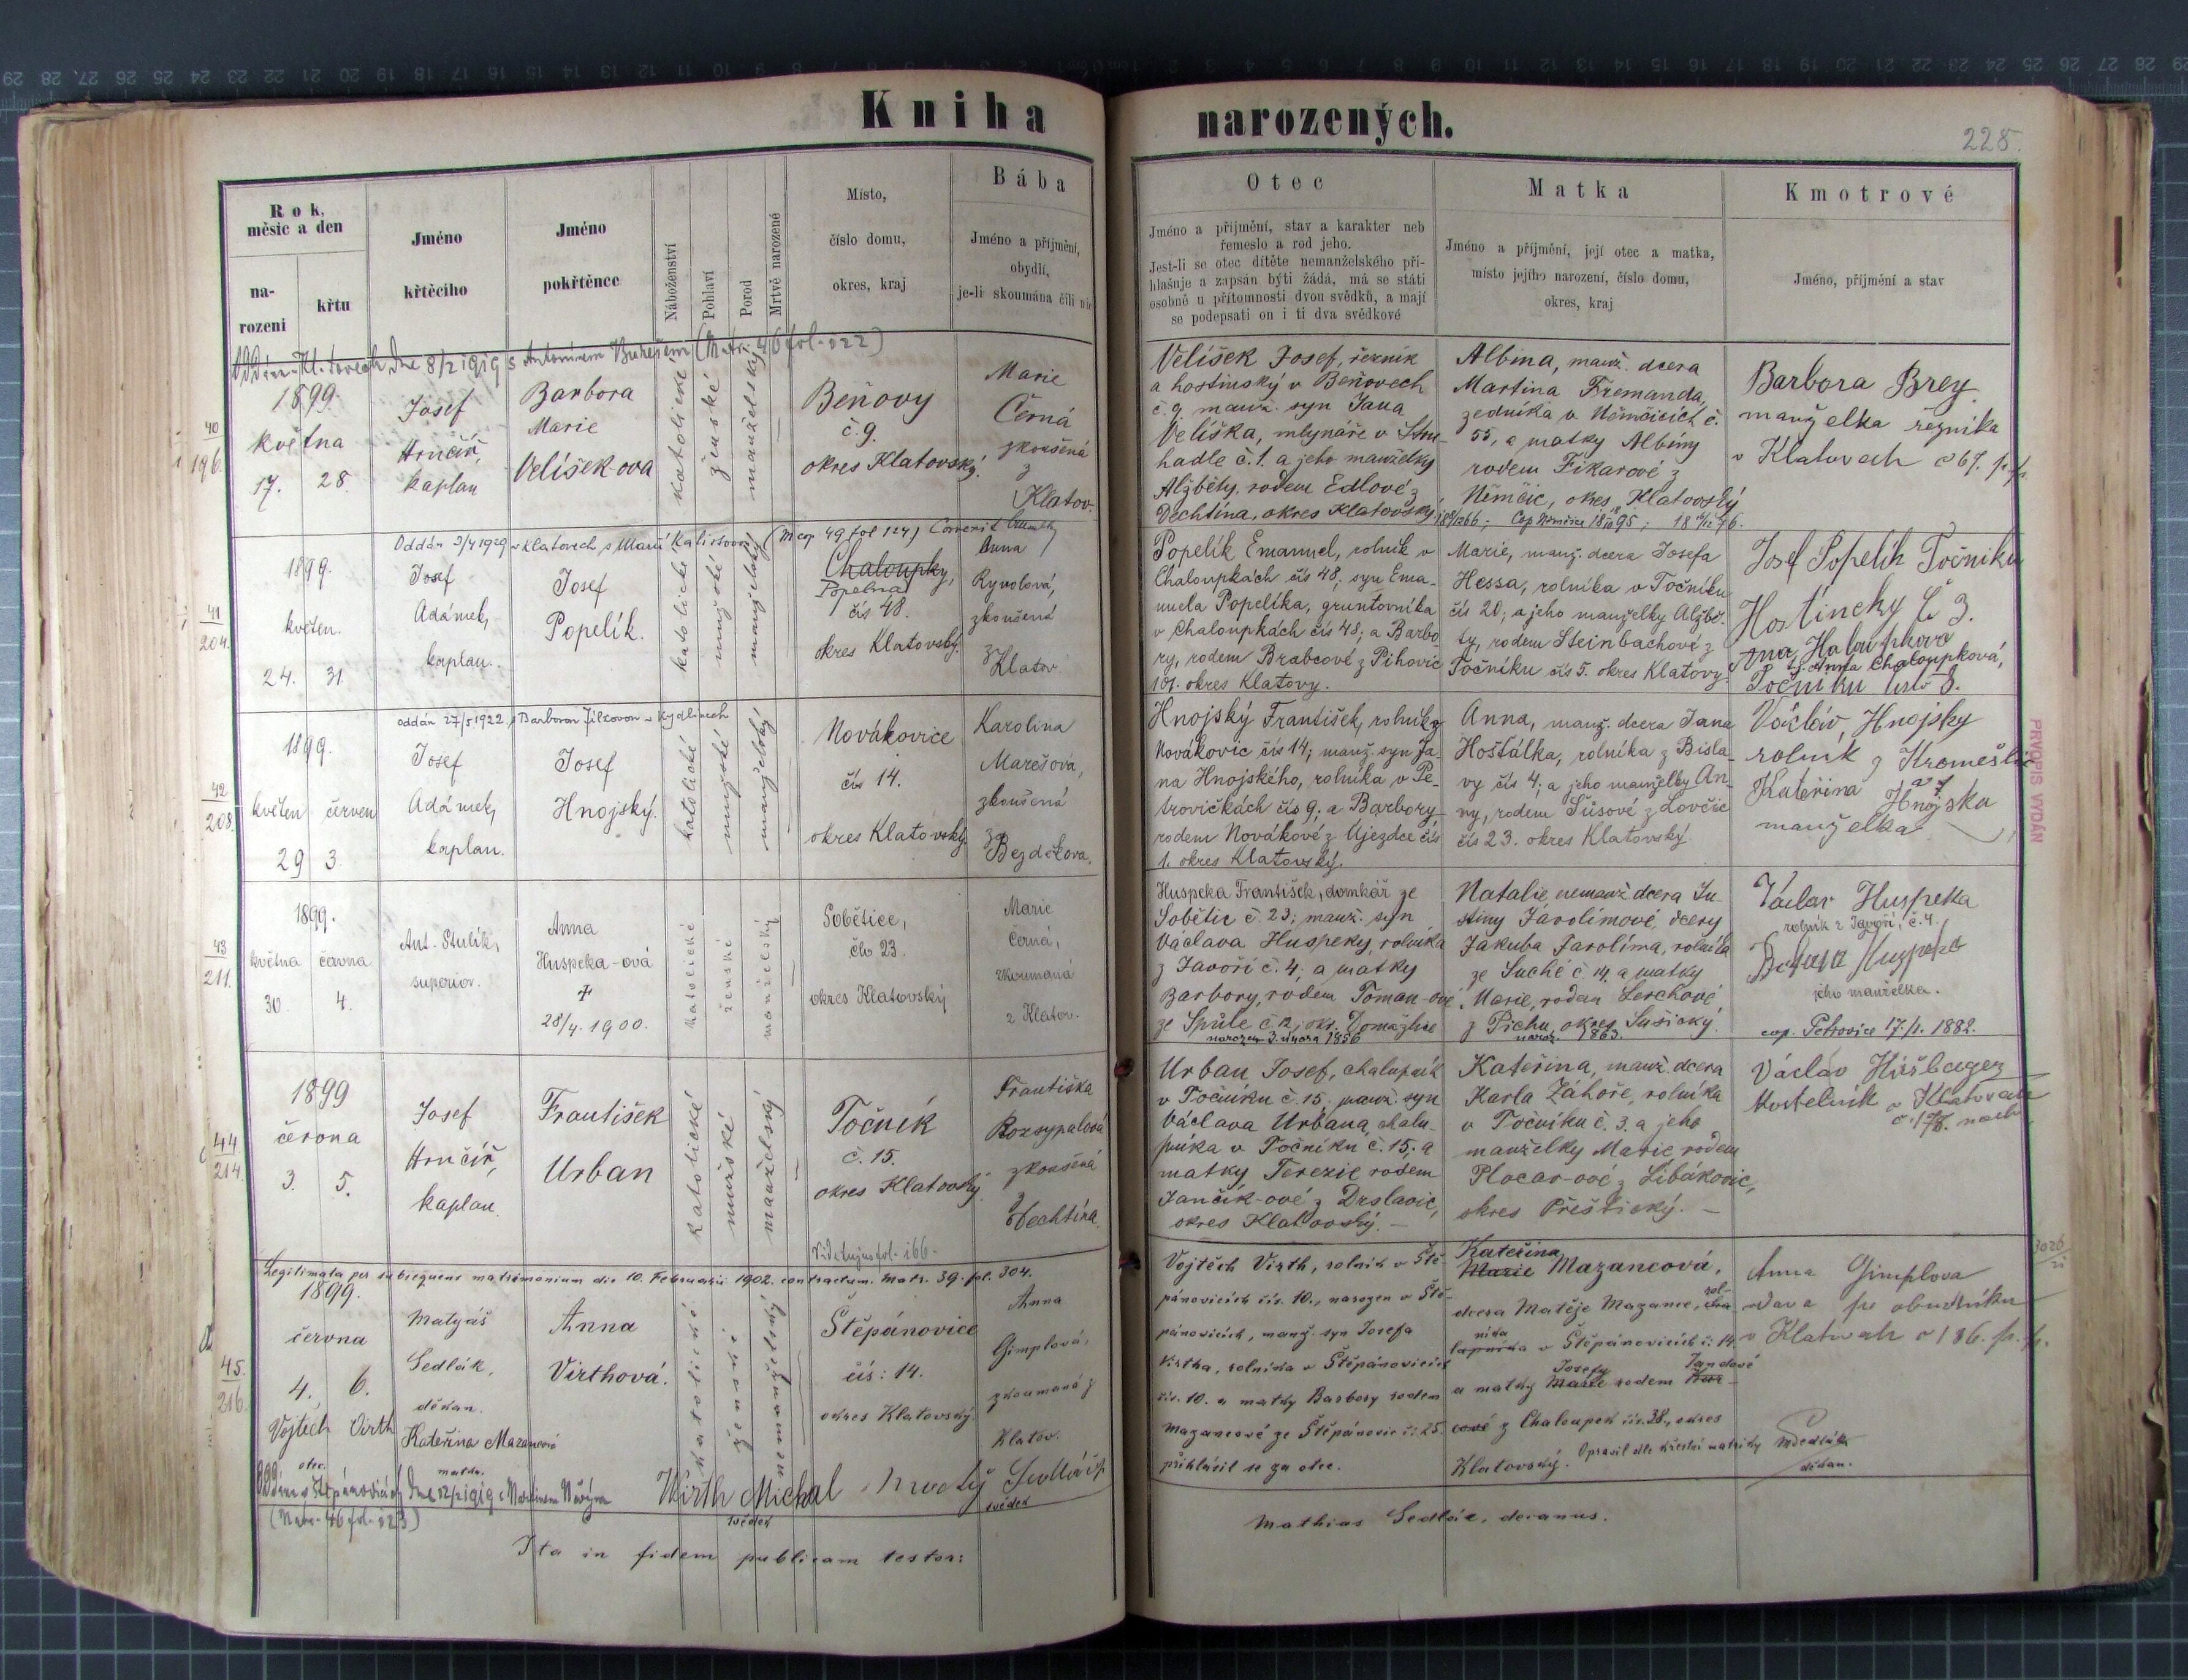 Kniha narozených.
228.
Rok, měsíc a den
narození
křtu
Jméno křtěcího
Jméno pokřtěnce
Náboženství
Pohlaví
Porod
Mrtvě narozené
Místo,
číslo domu,
okres, kraj
Bába
Jméno a příjmění,
obydlí,
je-li skoumána čili nic
Otec
Jméno a příjmění, stav a karakter neb
řemeslo a rod jeho.
Jest-li se otec dítěte nemanželského při-
hlašuje a zapsán býti žádá, má se státi
osobně u přítomnosti dvou svědků, a mají
se podepsati on i ti dva svědkové
Matka
Jméno a příjmění, její otec a matka,
místo jejího narození, číslo domu,
okres, kraj
Kmotrové
Jméno, příjmění a stav
40
196.
1899.
května
17. 28.
Josef
Hrnčíř,
kaplan
Barbora
Marie
Velíšek-ova
katolické
ženské
manželský
Beňovy
č. 9.
okres Klatovský.
Marie
Černá
zkoušená
z
Klatov.
Velíšek Josef, řezník
a hostinský v Beňovech
č. 9. manž. syn Jana
Velíška, mlynáře v Stru-
hadle č. 1. a jeho manželky
Alžběty, rodem Edlové z
Vechtína, okres Klatovský
Albina, manž. dcera
Martina Fremanda,
zedníka v Němčicích č.
55, a matky Albiny
rodem Fikarové z
Němčic, okres Klatovský
Barbora Brey
manželka řezníka
v Klatovech č 67. p. p.
41
204.
Oddán 3/4 1929 v Klatovech s Marií Kalistovou (M cop 49 fol 124)
1899.
květen.
24. 31.
Josef
Adámek,
kaplan.
Josef
Popelík.
katolické
mužské
manželský
Chaloupky,
čís 48.
okres Klatovský.
Anna
Rynolová,
zkoušená
z
Klatov.
Popelík Emanuel, rolník v
Chaloupkách čís 48; syn Ema-
nuela Popelíka, gruntovníka
v Chaloupkách čís 48; a Barbo
ry, rodem Brabcové z Pihovic
101. okres Klatovy.
Marie, manž. dcera Josefa
Hessa, rolníka v Točníku
čís 20; a jeho manželky Alžbě-
ty, rodem Steinbachové z
Točníku čís 5. okres Klatovy.
Josef Popelík Točníku
Hostincky Č 3.
Ana Haloupkova
t.j. Anna Chaloupková,
Točniku čislo 8.
42
208.
oddán 27/5 1922, s Barborou Jílkovou v Kydlinech
1899.
květen červen
29 3.
Josef
Adámek,
kaplan.
Josef
Hnojský.
katolické
mužské
manželský
Novákovice
čís 14.
okres Klatovský.
Karolina
Marešova,
zkoušená
z
Bezděkova.
Hnojský František, rolník z
Novákovic čís 14; manž. syn Ja-
na Hnojského, rolníka v Pe-
trovičkách čís 9, a Barbory
rodem Novákové z Újezdce čís
1. okres Klatovský.
Anna, manž. dcera Jana
Hošťálka, rolníka z Bisla-
vy čís 4; a jeho manželky An-
ny, rodem Šůsové z Lovčic
čís 23. okres Klatovský.
Václav, Hnojsky
rolník z Kroměšlic
Kateřina Hnojska
manželka
PRVOPIS VYDÁN
43
211.
1899.
května června
30. 4.
Ant. Stulík,
superior.
Anna
Huspeka-ová
+
28/4. 1900.
katolické
ženské
manželský
Sobětice,
čís 23.
okres Klatovský
Marie
Černá,
zkoumaná
z Klatov.
Huspeka František, domkář ze
Sobětic č. 23; manž. syn
Václava Huspeky, rolníka
z Javoří č. 4; a matky
Barbory, rodem Toman-ové
ze Spůle č 12, okr. Domažlice
narozen 3. února 1856
Natalie, nemanž. dcera Ju-
stiny Jarolímové, dcery
Jakuba Jarolíma, rolníka
ze Suché č 14. a matky
Marie, rodem Lerchové
z Píchu, okres Sušický.
naroz. 1863.
Václav Huspeka
rolník z Javoří, č. 4.
Barbora Huspeka
jeho manželka.
cop. Petrovice 17./1. 1882.
44
214.
1899
června
3. 5.
Josef
Hrnčíř,
kaplan.
František
Urban
katolické
mužské
manželský
Točník
č. 15.
okres Klatovský
Františka
Rozsypalová
zkoušená
z
Vechtína.
Urban Josef, chalupník
v Točníku č. 15. manž. syn
Václava Urbana, chalu-
pníka v Točníku č. 15; a
matky Terezie rodem
Jančík-ové z Drslavic,
okres Klatovský. —
Kateřina, manž. dcera
Karla Záhoře, rolníka
v Točníku č. 3. a jeho
manželky Marie, rodem
Plocar-ové z Libákovic,
okres Přeštický. —
Václav
kostelník v Klatovech
45.
216.
Legitimata per subsequens matrimonium die 10. Februarii 1902. contractum. Matr. 39. fol. 304.
1899.
června
4. 6.
Matyáš
Sedlák,
děkan.
Anna
Virthová.
katolické
ženské
nemanželský
Štěpánovice
čís: 14.
okres Klatovský.
Anna
Gimplová,
zkoumaná z
Klatov.
Vojtěch Virth
otec.
Kateřina Mazancová
matka.
Wirth Michal
svědek
svědek
Vojtěch Virth, rolník v Ště-
pánovicích čís. 10., narozen v Ště-
pánovicích, manž. syn Josefa
Virtha, rolníka v Štěpánovicích
čís. 10. a matky Barbory rodem
Mazancové ze Štěpánovic č: 25.
přihlásil se za otce.
Kateřina
Marie Mazancová,
dcera Matěje Mazance, rol-
níka v Štěpánovicích č: 14
a matky Josefy rodem Jandové
z Chaloupek čís. 38., okres
Klatovský. Opravil dle křestní matriky
MSedlák
děkan.
Anna Gimplova
vdova po obuvníku
v Klatovech č 186. p. p.
Ita in fidem publicam testor:
Mathias Sedlák, decanus.